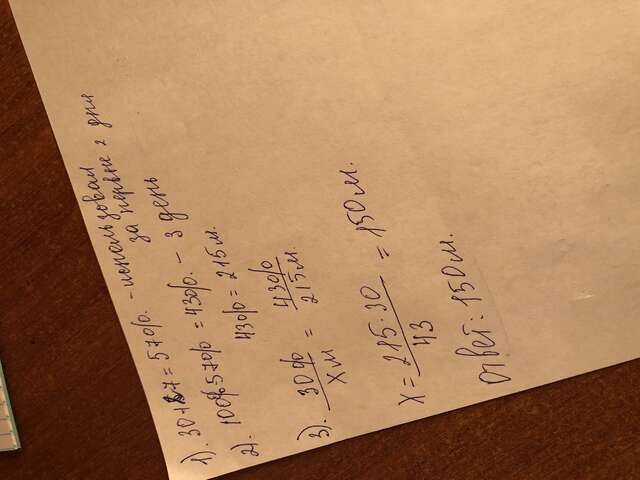 1). 30+27=57%. - использовал
за первые 2 дня
2). 100%57%=43%. - 3 день
43%=215м.
3). 30%/Xм = 43%/215м.
X = 215·30/43 = 150м.
Ответ: 150м.